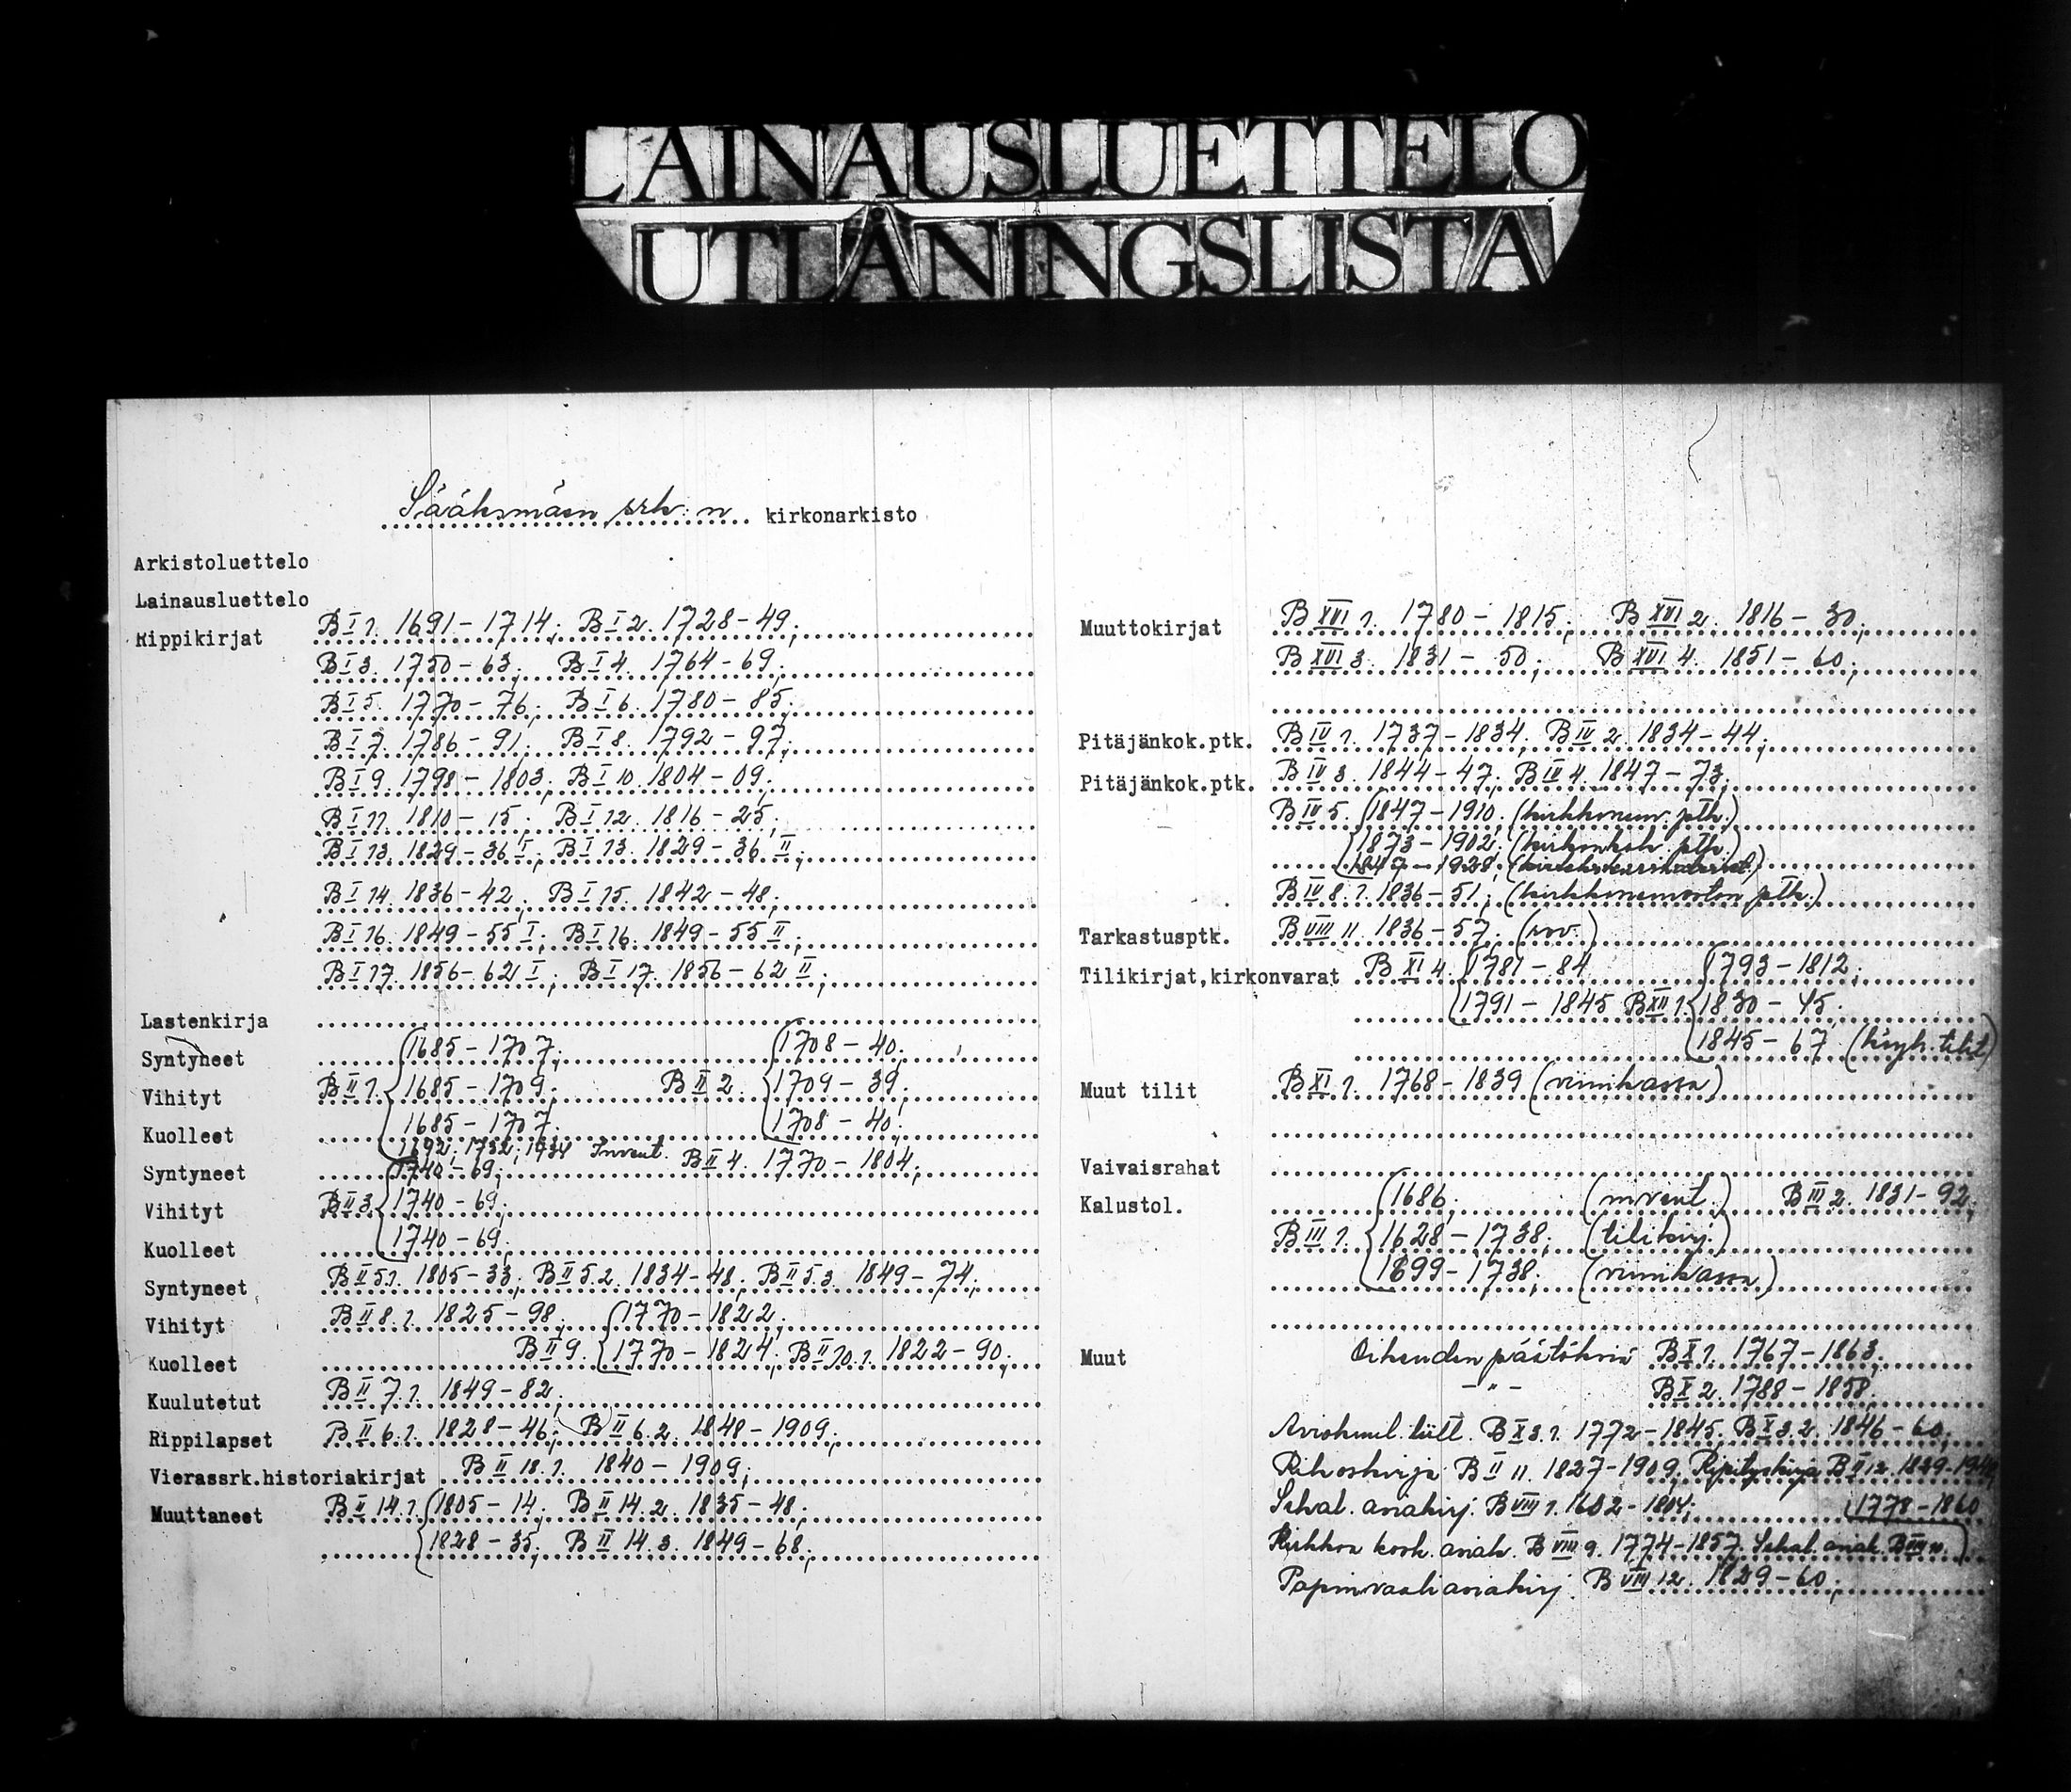 LAINAUSLUETTELO
UTLÅNINGSLISTA
Sääksmäen srk:n kirkonarkisto
Arkistoluettelo
Lainausluettelo
Rippikirjat B I 1. 1691-1714; B I 2. 1728-49;
B I 3. 1750-63; B I 4. 1764-69;
B I 5. 1770-76; B I 6. 1780-85;
B I 7. 1786-91; B I 8. 1792-97;
B I 9. 1798-1803; B I 10. 1804-09;
B I 11. 1810-15; B I 12. 1816-25;
B I 13. 1829-36 I; B I 13. 1829-36 II;
B I 14. 1836-42; B I 15. 1842-48;
B I 16. 1849-55 I; B I 16. 1849-55 II;
B I 17. 1856-62 I; B I 17. 1856-62 II;
Lastenkirja
Syntyneet 1685-1707; 1708-40;
Vihityt B II 1. 1685-1709; B II 2. 1709-39;
Kuolleet 1685-1707; 1708-40;
1692; 1732; 1934 Invent.
Syntyneet 1740-69; B II 4. 1770-1804;
Vihityt B II 3. 1740-69;
Kuolleet 1740-69;
Syntyneet B II 5.1. 1805-33; B II 5.2. 1834-48; B II 5.3. 1849-74;
Vihityt B II 8.1. 1825-98; 1770-1822;
Kuolleet B II 9. 1770-1824; B II 10.1. 1822-90;
Kuulutetut B II 7.1. 1849-82;
Rippilapset B II 6.1. 1828-46; B II 6.2. 1848-1909;
Vierassrk.historiakirjat B II 18.1. 1840-1909;
Muuttaneet B II 14.1. 1805-14; B II 14.2. 1835-48;
1828-35; B II 14.3. 1849-68;
Muuttokirjat B XVI 1. 1780-1815; B XVI 2. 1816-30;
B XVI 3. 1831-50; B XVI 4. 1851-60;
Pitäjänkok.ptk. B IV 1. 1737-1834; B IV 2. 1834-44;
Pitäjänkok.ptk. B IV 3. 1844-47; B IV 4. 1847-73;
B IV 5. 1847-1910; (kirkkoneuv. ptk.)
1873-1902; (kirkonkok. ptk.)
1928;
B IV 8.1. 1836-51; (kirkkoneuvoston ptk.)
Tarkastusptk. B VIII 11. 1836-57; (rov.)
Tilikirjat,kirkonvarat B XI 4. 1781-84 1793-1812;
1791-1845 B XII 1. 1830-45;
1845-67 (köyh. tilit)
Muut tilit B XI 1. 1768-1839 (viinikassa)
Vaivaisrahat
Kalustol. 1686; (invent.) B III 2. 1831-92;
B III 1. 1628-1738; (tilikirj.)
1699-1738; (viinikassa)
Muut Oikeuden päätöksiä B X 1. 1767-1863;
-"- B X 2. 1788-1858;
Avioku​ul. luett. B X 3.1. 1772-1845; B X 3.2. 1846-60;
Rikoskirja B II 11. 1827-1909; Ripityskirja B II 12. 1829-1949
Sekal. asiakirj. B VIII 1. 1602-1804; 1778-1860
Kirkkoa kosk. asiak. B VIII 9. 1774-1857; Sekal. asiak. B VIII
Papinvaaliasiakirj. B VIII 12. 1829-60;